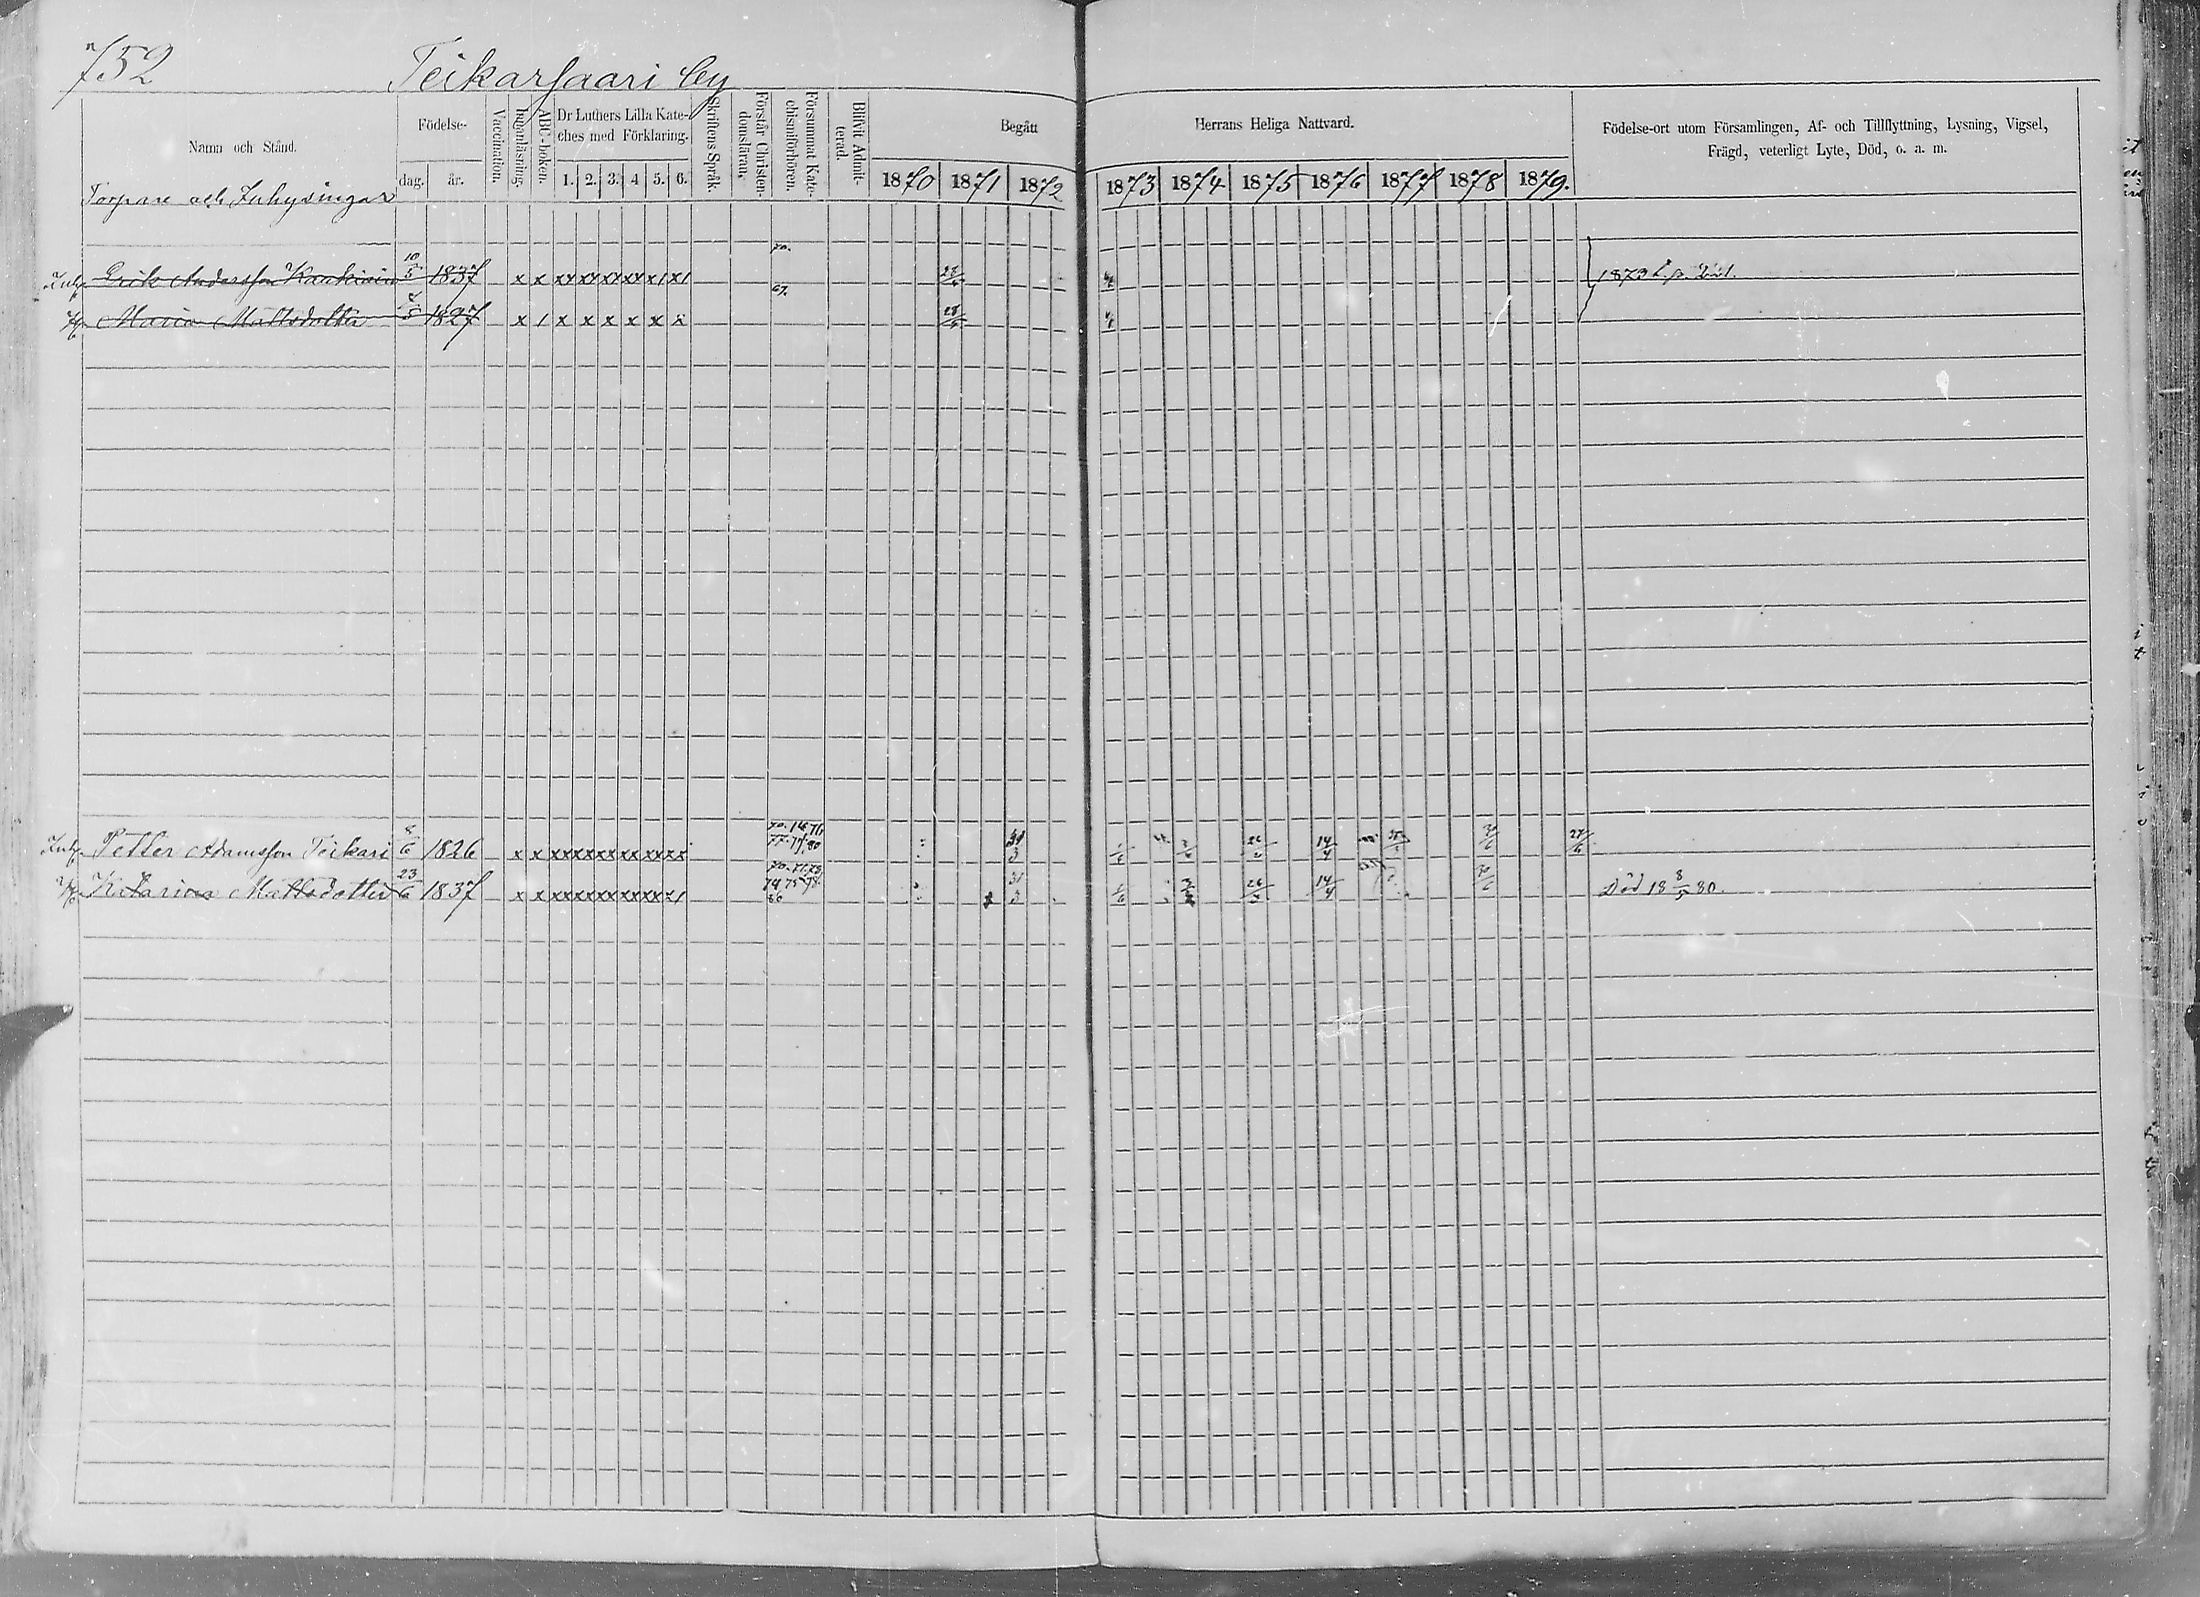 752 Teikarsaari by
Namn och Stånd.
Födelse-
dag. år.
Vaccination.
Innanläsning.
ABC-boken.
Dr Luthers Lilla Kate-
ches med Förklaring.
1. 2. 3. 4 5. 6.
Skriftens Språk.
Förstår Christen-
domsläran.
Försummat Kate-
chismiförhören.
Blifvit Admit-
terad.
Begått Herrans Heliga Nattvard.
1870 1871 1872 1873 1874 1875 1876 1877 1878 1879.
Födelse-ort utom Församlingen, Af- och Tillflyttning, Lysning, Vigsel,
Frägd, veterligt Lyte, Död, o. a. m.
Torpare och Inhysingar
70.
Inh. Erik Andersson 10/5 1837 x x xx xx xx xx x1 x1 1873
67.
Maria Mattsdotter 1827 x 1 x x x x x x
Inh. Petter Adamsson Teikari 8/6 1826 x x xx xx xx xx xx xx 31/3 26 14/4 27/6
Mattsdotter 23/6 1837 x x xx xx xx xx xx x1 31/3 26 14/4 Död 18 8/5 80.